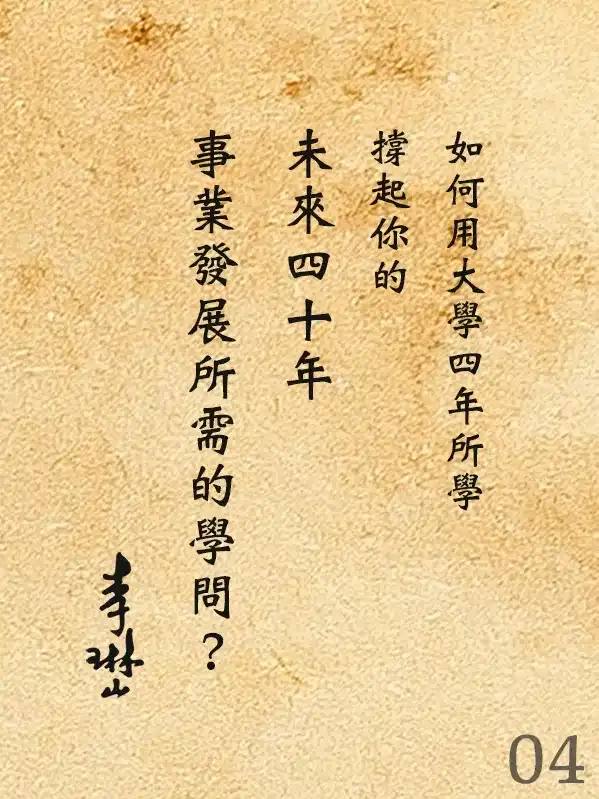 如何用大學四年所學
撐起你的
未來四十年
事業發展所需的學問？
李琳山
04